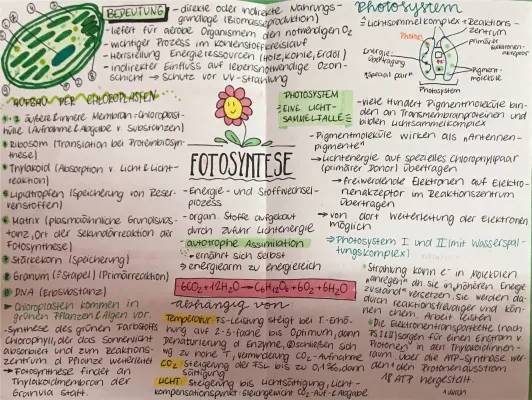 BEDEUTUNG
- direkte oder indirekte Nahrungs-
grundlage (Biomasseproduktion)
- liefert für aerobe Organismen den notwendigen O2
- wichtiger Prozess im Kohlenstoffkreislauf
- Herstellung Energieressourcen (Holz, Kohle, Erdöl)
- indirekter Einfluss auf lebensnotwendige Ozon-
schicht → Schutz vor UV-Strahlung
Photosystem
= Lichtsammelkomplex + Reaktions-
zentrum
Photon
primärer
Energie-
übertragung
"special pair"
Pigment-
moleküle
Photosystem
AUFBAU DER CHLOROPLASTEN
1 + 2 äußere & innere Membran = Chloroplast-
hülle (Aufnahme & Abgabe v. Substanzen)
Ribosom (Translation bei Proteinbiosyn-
these)
Thylakoid (Absorption v. Licht & Licht-
reaktion)
Lipidtropfen (Speicherung von Reser-
venstoffen)
Matrix (plasmaähnliche Grundsubs-
tanz, Ort der Sekundärreaktion der
Fotosynthese)
Stärkekorn (Speicherung)
Granum (Stapel) (Primärreaktion)
DNA (Erbsubstanz)
→ Chloroplasten kommen in
grünen Pflanzen & Algen vor.
- Synthese des grünen Farbstoffs
Chlorophyll, der das Sonnenlicht
absorbiert und zum Reaktions-
zentrum d. Pflanze weiterleitet
→ Fotosynthese findet an
Thylakoidmembran der
Grana statt.
PHOTOSYSTEM
EINE LICHT-
SAMMELFALLE
FOTOSYNTESE
- Energie- und Stoffwechsel-
prozess
- organ. Stoffe aufgebaut
durch zufuhr Lichtenergie
- autotrophe Assimilation
→ ernährt sich selbst
→ energiearm zu energiereich
6CO2 + 12H2O → C6H12O6 + 6O2 + 6H2O
abhängig von
Temperatur: FS-Leistung steigt bei T-Erhö-
hung auf 2-3-fache bis Optimum, dann
Denaturierung d. Enzyme, schließen sich
wg zu hohe T, Verminderung CO2-Aufnahme
CO2: Steigerung der FSL bis zu 0,1%, dann
Sättigung
LICHT: Steigerung bis Lichtsättigung, Licht-
kompensationspunkt: Gleichgewicht CO2-Auf- & Abgabe
- viele Hundert Pigmentmoleküle bin-
den an Transmembranproteinen und
bilden Lichtsammelkomplex
- Pigmentmoleküle wirken als "Antennen-
pigmente"
→ Lichtenergie auf spezielles Chlorophyllpaar
(primärer Donor) übertragen
→ freiwerdende Elektronen auf Elektro-
nenakzeptor im Reaktionszentrum
übertragen
→ von dort Weiterleitung der Elektronen
möglich
→ Photosystem I und II (mit Wasserspal-
tungskomplex)
Strahlung kann e⁻ in Molekülen
"anregen" d.h. sie in höheren Energie
zustand versetzen, sie werden da-
durch reaktionsfreudiger und kön-
nen chem. Arbeit leisten
Die Elektronentransportkette (nach
PS I & II) sorgen für einen Eingang v.
Protonen in den Thylakoidinnen-
raum. Über die ATP-Synthase wer-
den den Protonenausstrom
18 ATP hergestellt.
durch